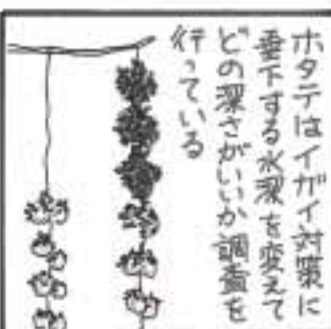 ホタテはイガイ対策に
垂下する水深を変えて
どの深さがいいか調査を
行っている